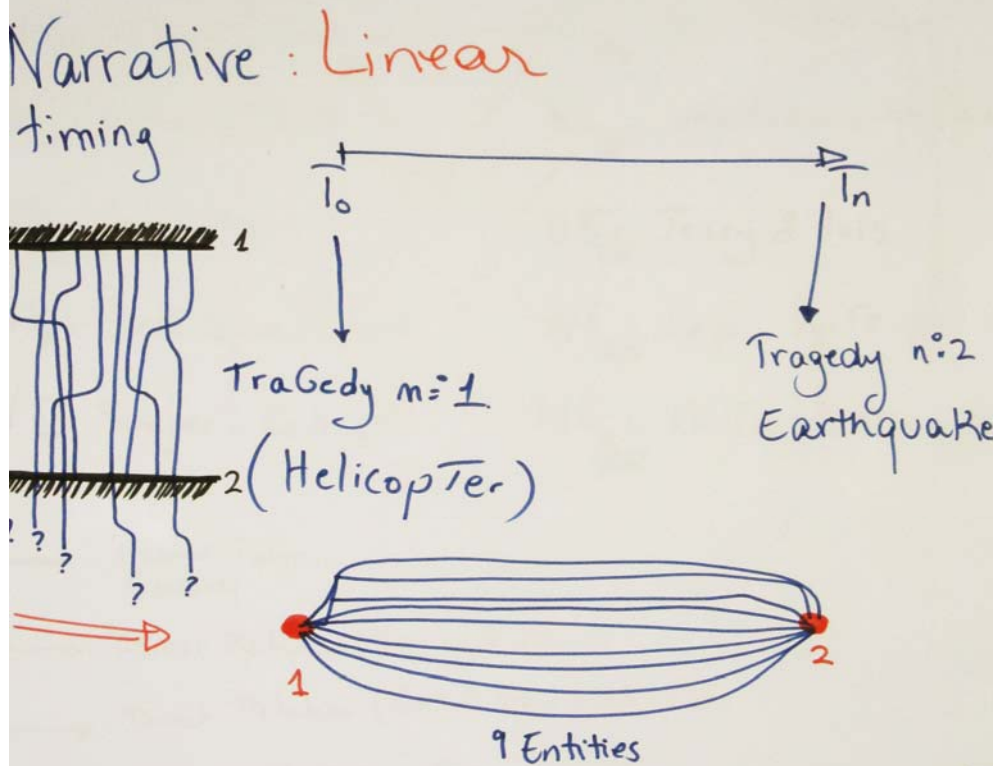 Narrative : Linear
timing
T₀
Tn
1
TraGedy n:= 1
(HelicopTer)
Tragedy n:2
Earthquake
2
?
?
?
?
?
1
2
9 Entities